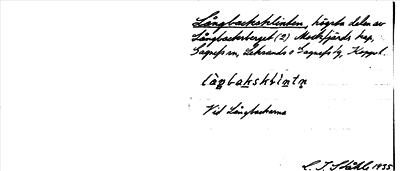 Långbacksklinten, högsta delen av
Långbacksberget (2) Mockfjärds kap,
Gagnefs sn, Leksands o Gagnefs tg, Koppbl.
làŋbaksklintn
Vid Långbackarna
L. J. Ståhle 1935